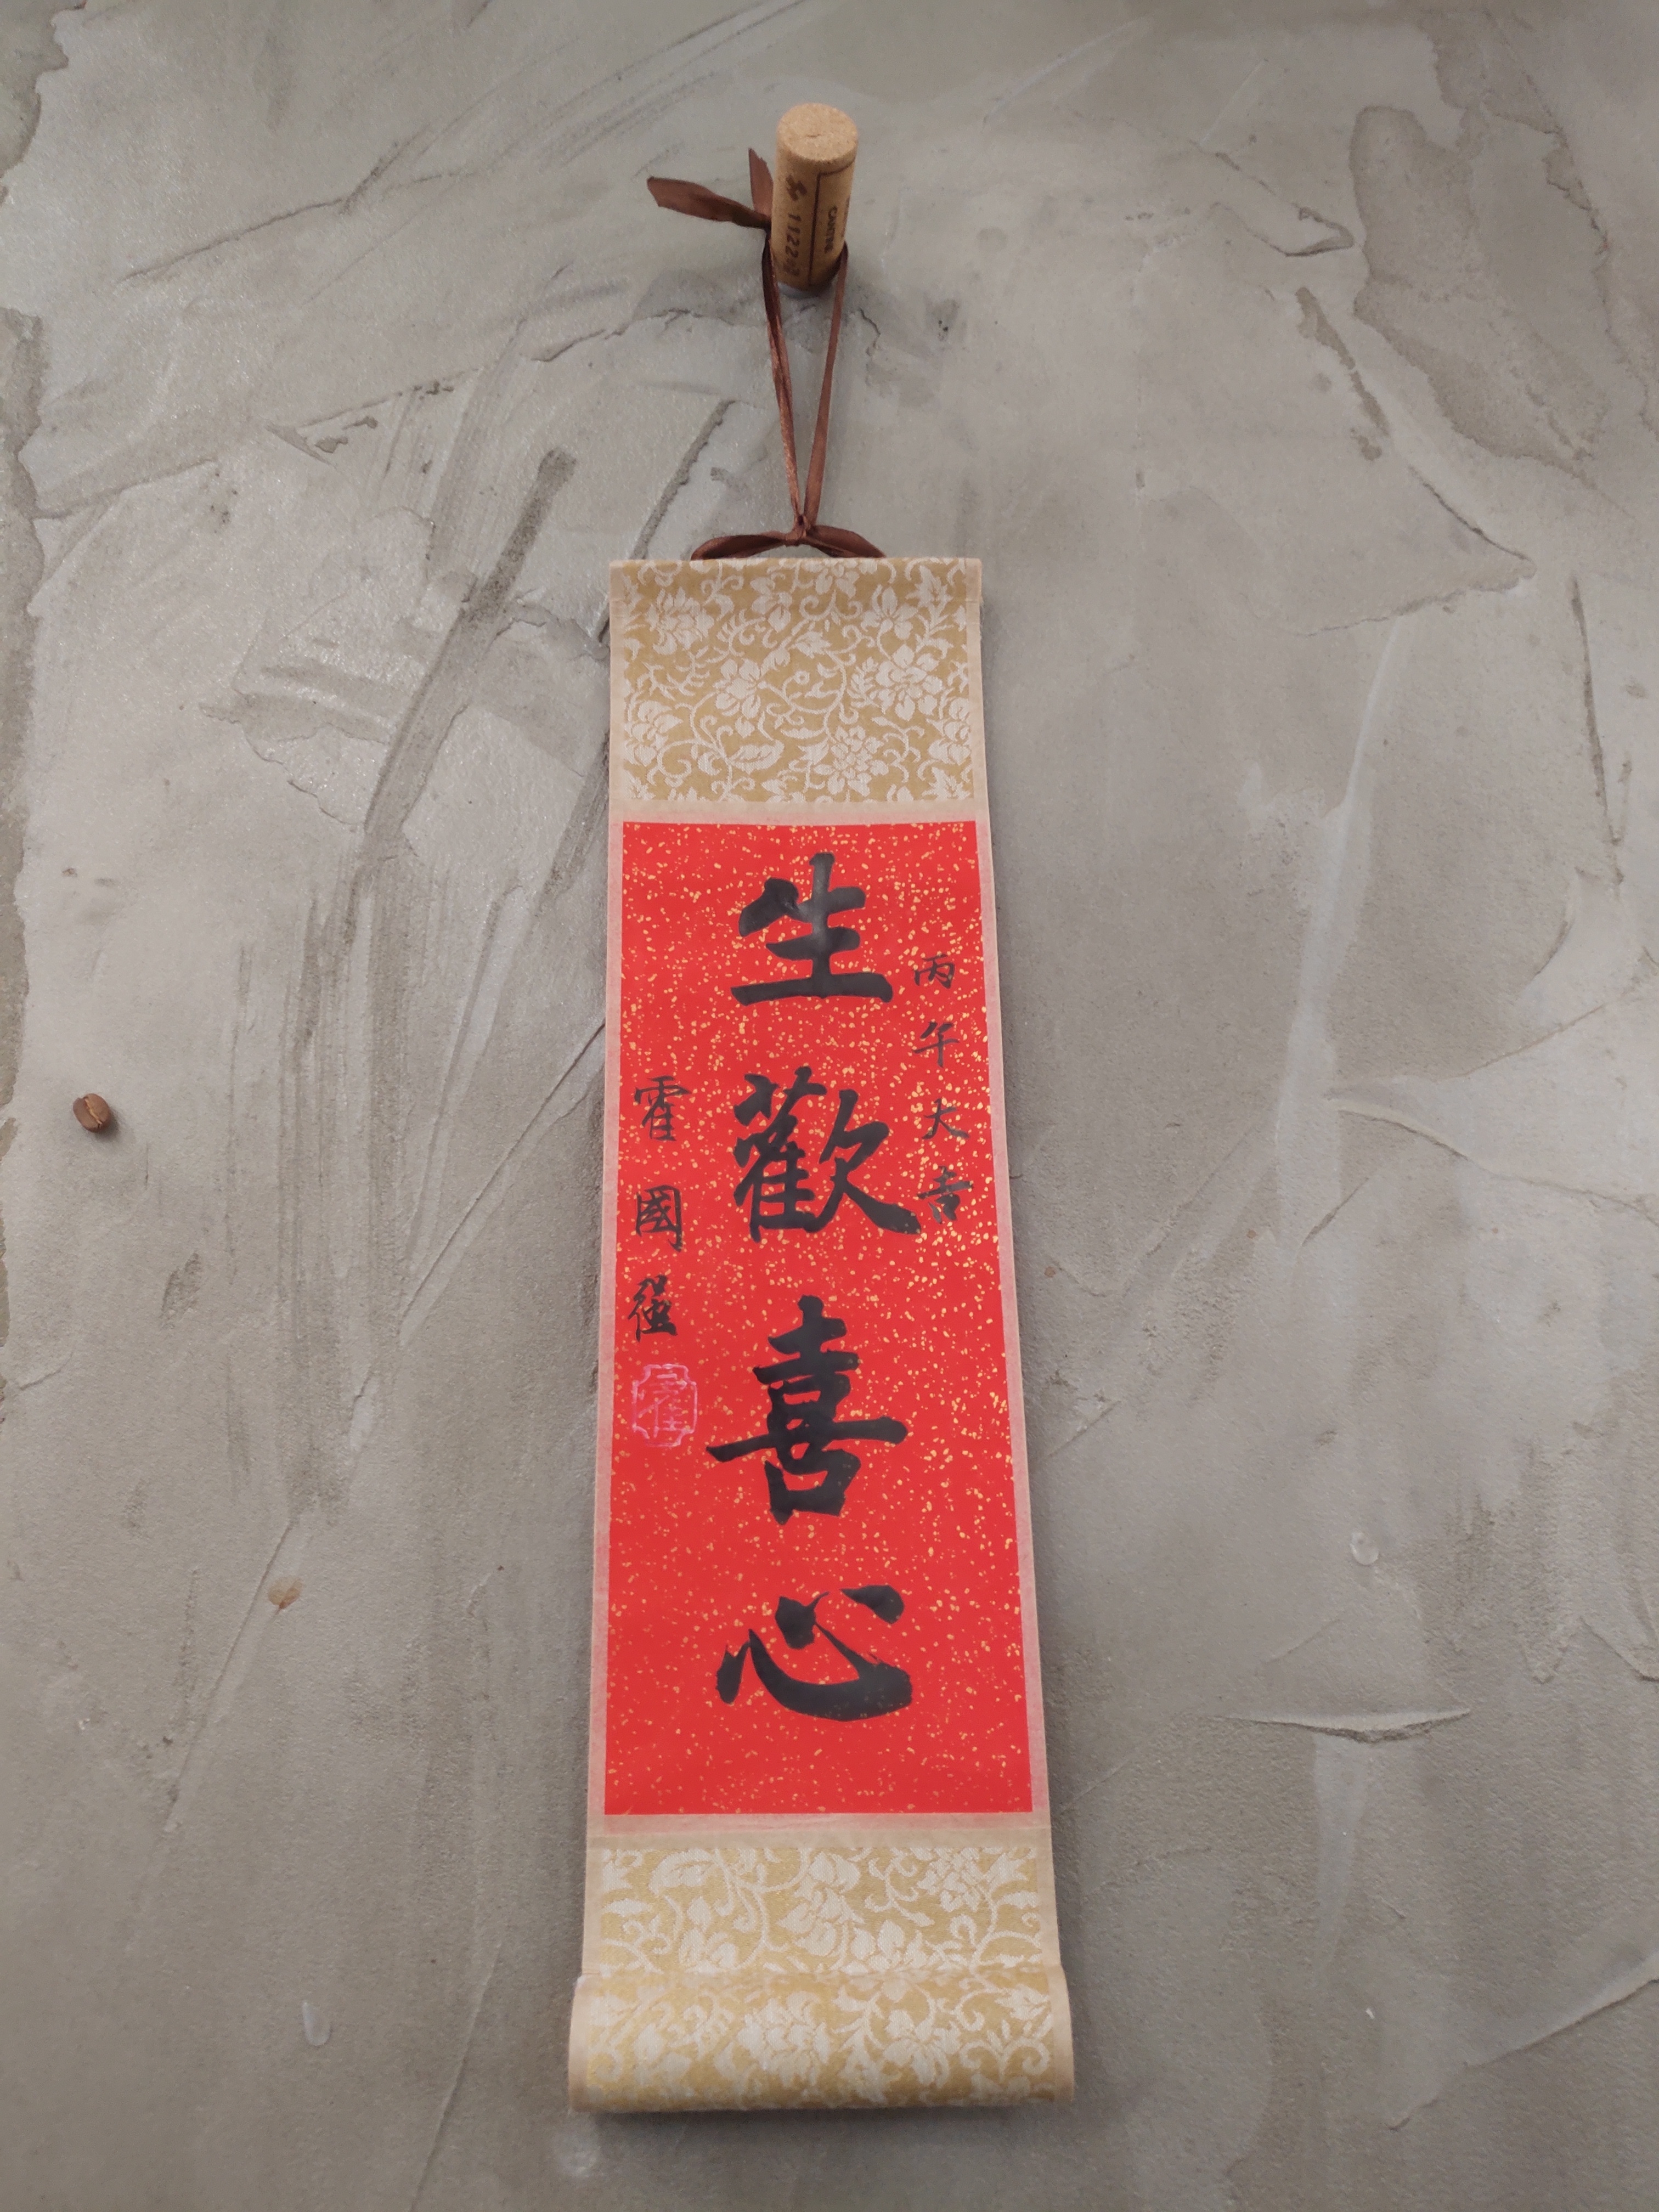 丙午大吉
生歡喜心
霍國強
霍